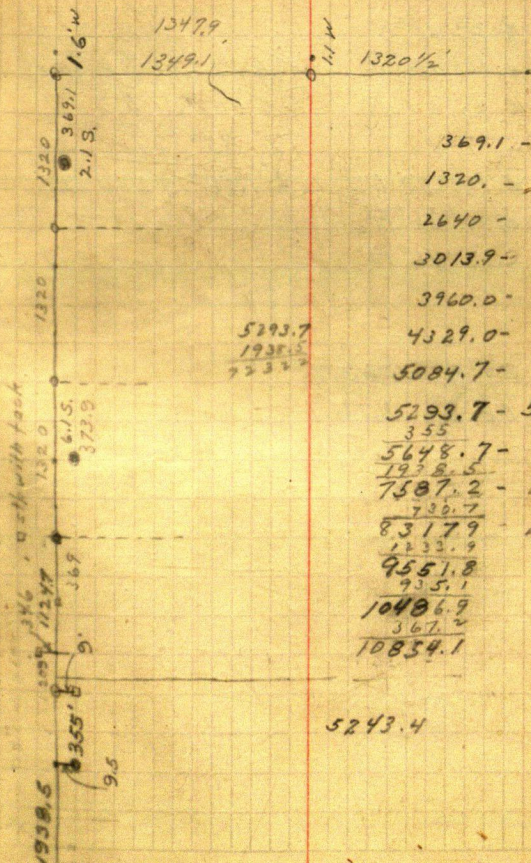 1347.9
1349.1
1320½'
1.6'W
1.1 W
369.1
2.1 S.
1320
1320
6.1 S.
373.9
1320
369
1124.7
9'
355'
9.5
1938.5
5293.7
1938.5
7232.2
369.1 -
1320. -
2640 -
3013.9 -
3960.0 -
4329.0 -
5084.7 -
5293.7 -
355
5648.7 -
1938.5
7587.2 -
730.7
83179
1233.9
9551.8
935.1
10486.9
367.2
10854.1
5243.4